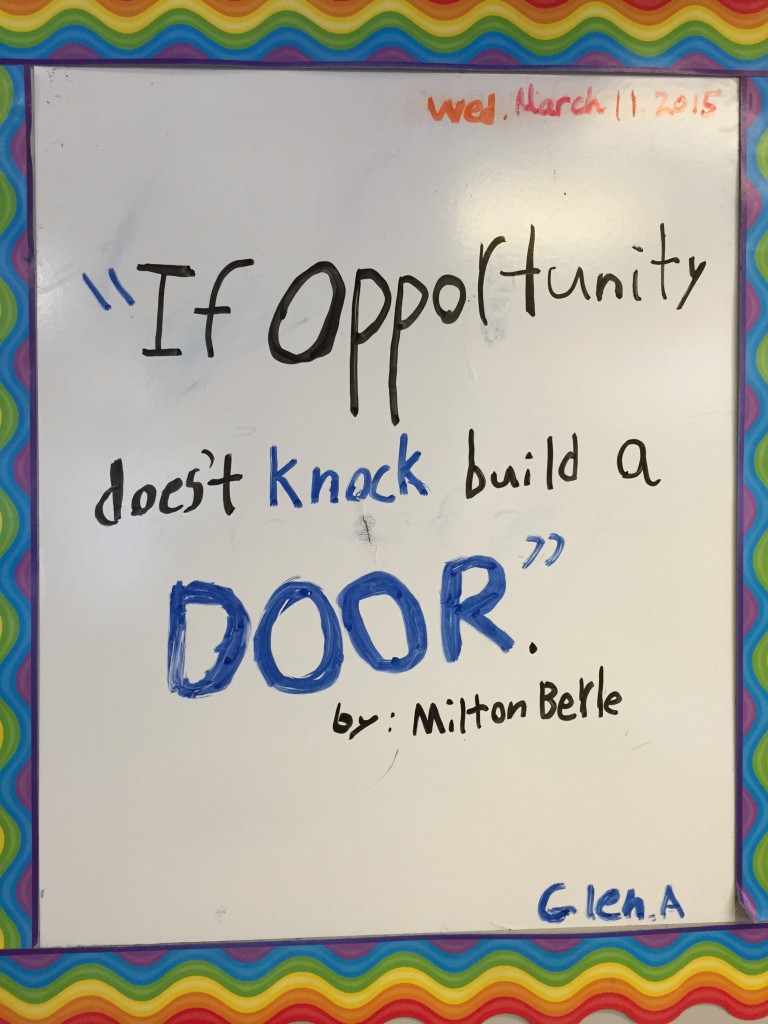 Wed. March 11. 2015
"If Opportunity
does't knock build a
DOOR".
by: Milton Berle
Glen.A